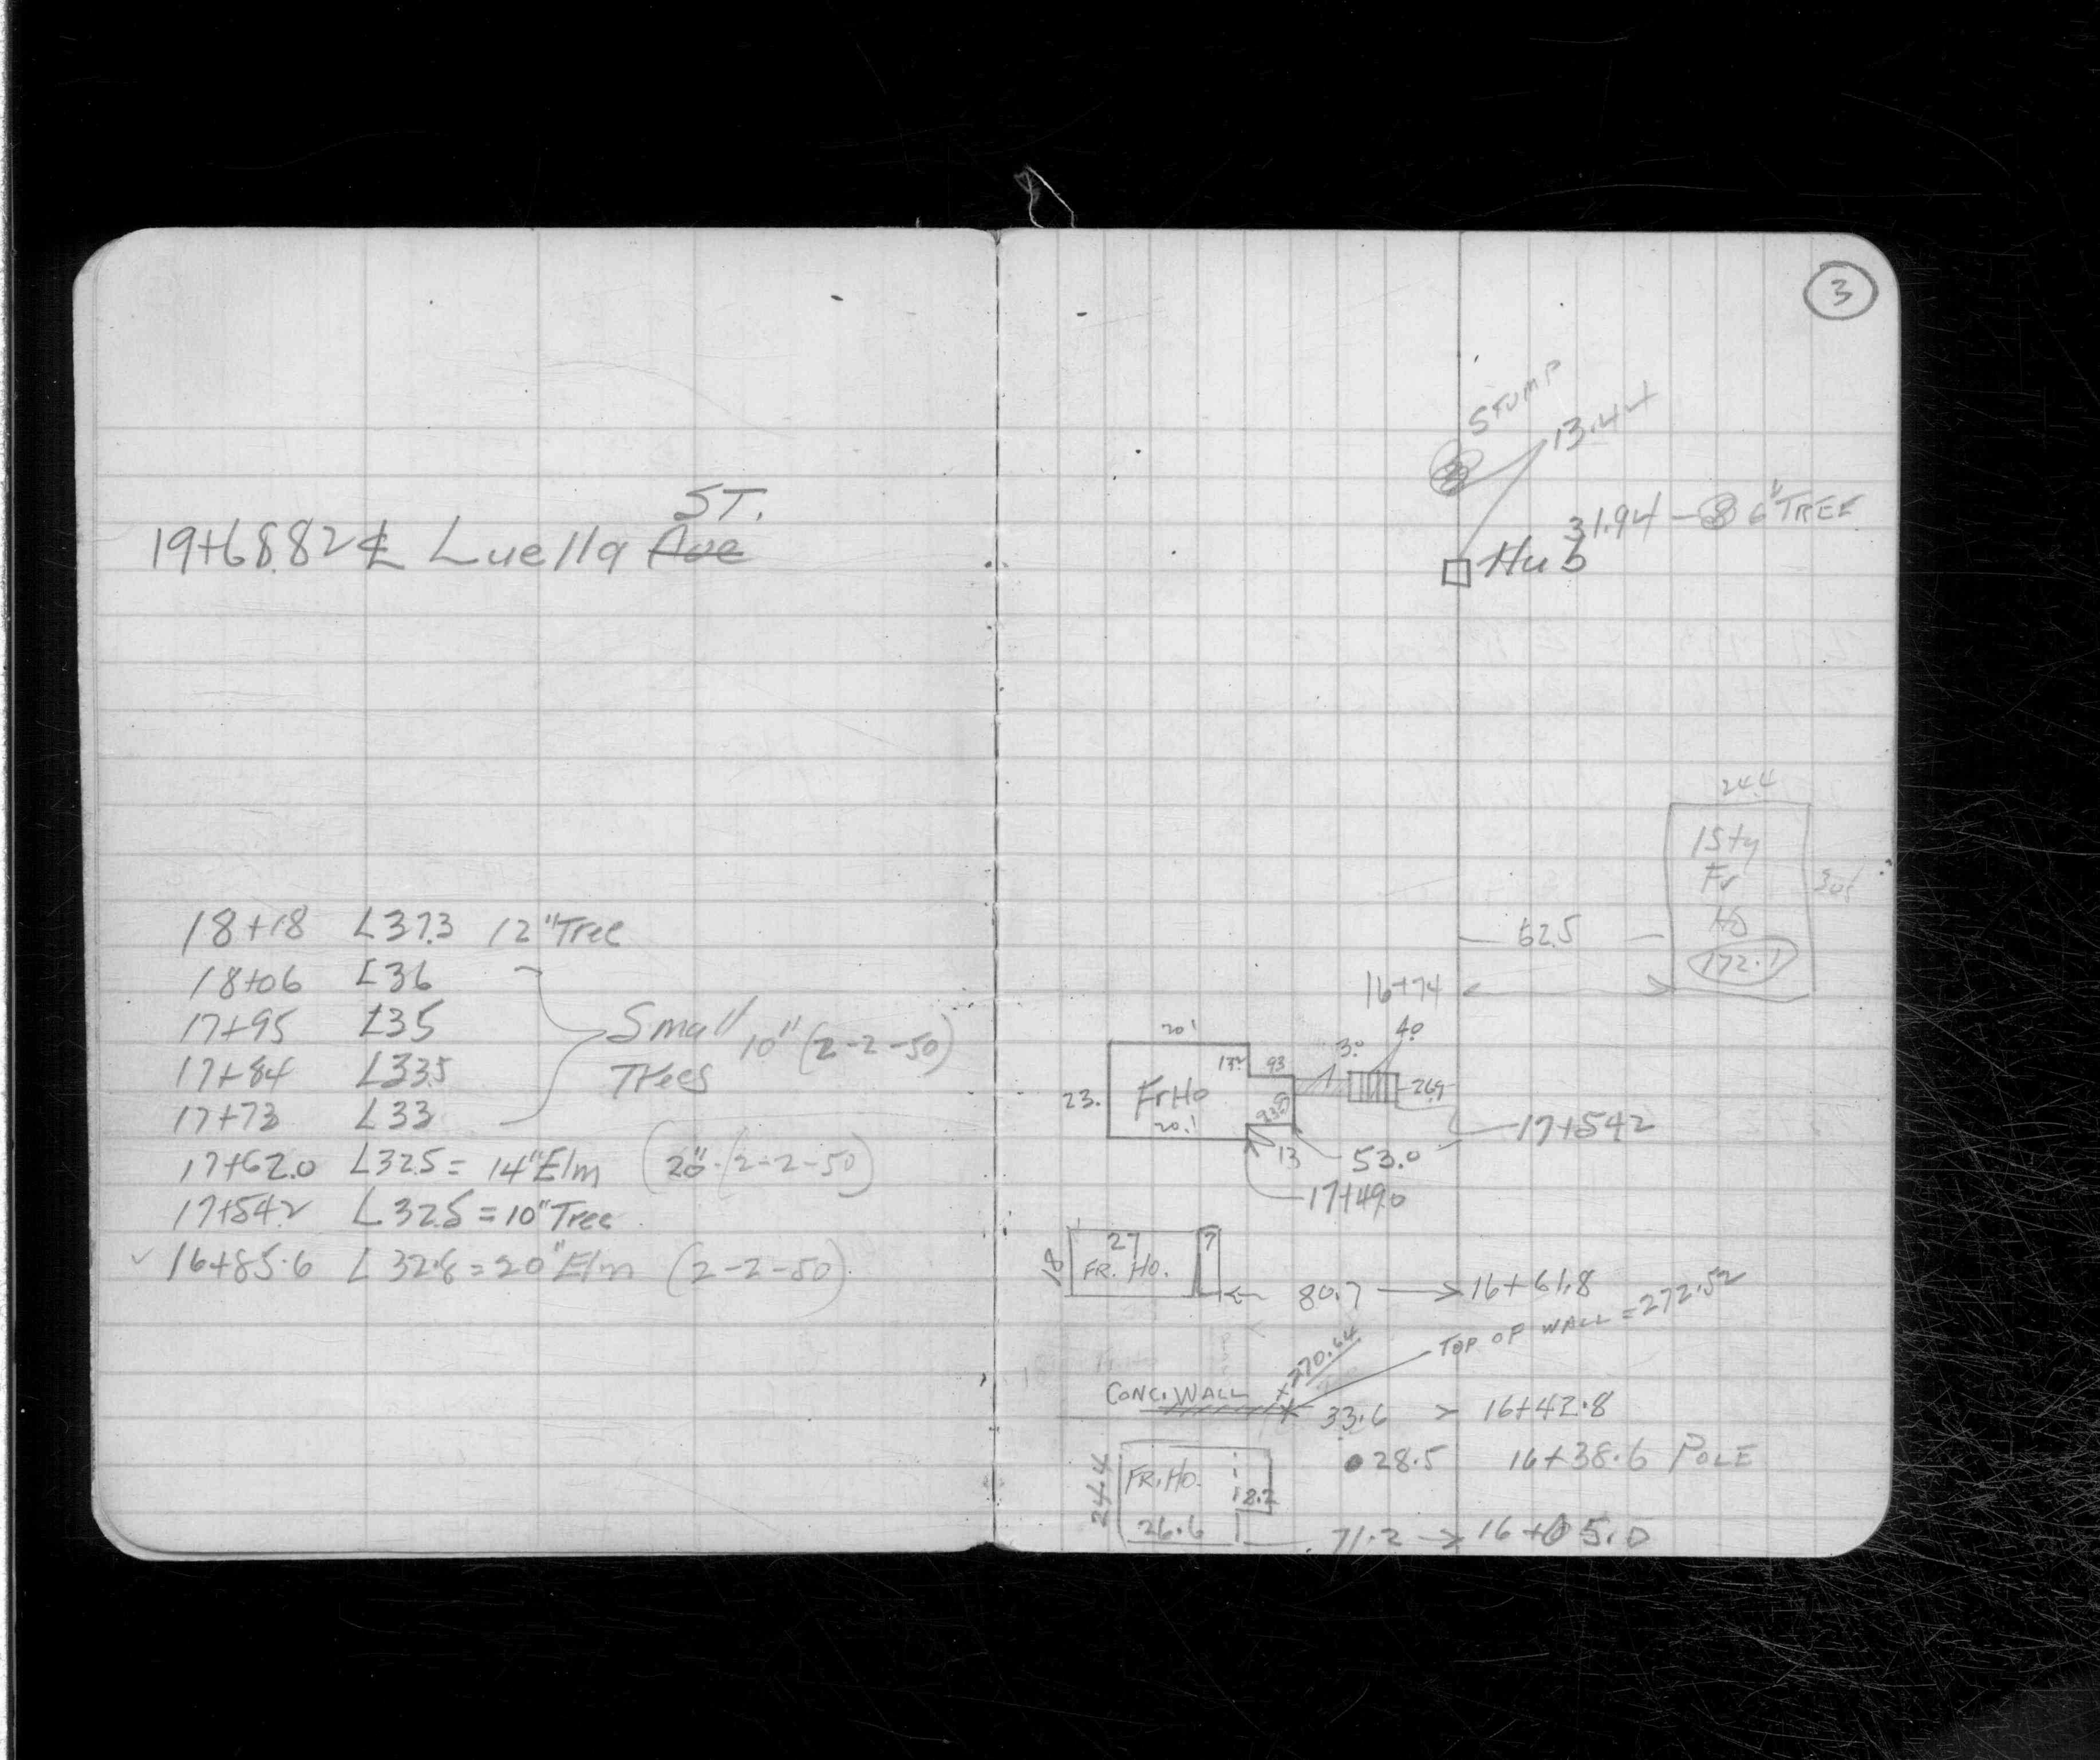 ST.
19+68.82 ℄ Luella Ave
18+18 L37.3 12" Tree
18+06 L36
17+95 L35
Small 10" (2-2-50)
17+84 L33.5
Trees
17+73 L33
17+62.0 L32.5 = 14" Elm (20" (2-2-50)
17+54.2 L32.5 = 10" Tree
✓ 16+85.6 L 32.8 = 20" Elm (2-2-50)
3
STUMP
13.44
31.94 6" TREE
Hub
24.4
1 Sty
Fr
Ho
172.1
62.5
16+74
20.1
13.2 9.3 3.0 4.0
23. Fr Ho 26.9
20.1
17+54.2
13 53.0
17+49.0
27 7
18 FR. HO.
80.7 16+61.8
TOP OF WALL = 272.52
+270.64
CONC. WALL
33.6 > 16+42.8
28.5 16+38.6 POLE
24.4 FR. HO.
18.2
26.6
71.2 16+05.0